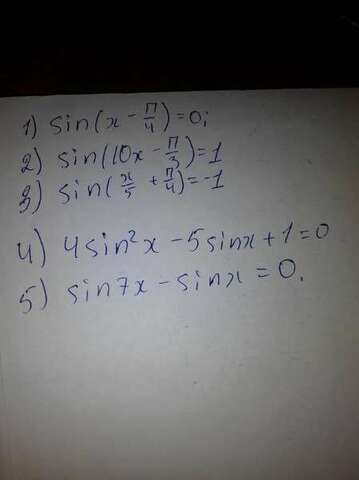 1) sin(x - π/4) = 0;
2) sin(10x - π/3) = 1
3) sin(x/5 + π/4) = -1
4) 4sin²x - 5sinx + 1 = 0
5) sin7x - sinx = 0.